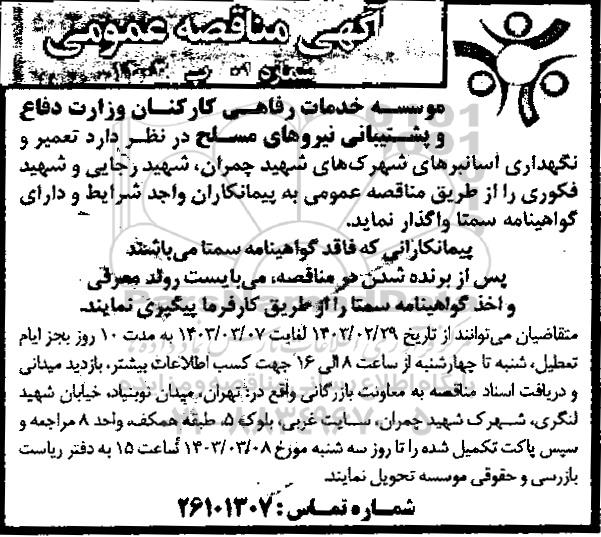 آگهی مناقصه عمومی
شماره
موسسه خدمات رفاهی کارکنان وزارت دفاع
و پشتیبانی نیروهای مسلح در نظر دارد تعمیر و
نگهداری آسانبرهای شهرک‌های شهید چمران، شهید رجایی و شهید
فکوری را از طریق مناقصه عمومی به پیمانکاران واجد شرایط و دارای
گواهینامه سمتا واگذار نماید.
پیمانکارانی که فاقد گواهینامه سمتا می‌باشند
پس از برنده شدن در مناقصه، می‌بایست روند معرفی
و اخذ گواهینامه سمتا را از طریق کارفرما پیگیری نمایند.
متقاضیان می‌توانند از تاریخ ۱۴۰۳/۰۲/۲۹ لغایت ۱۴۰۳/۰۳/۰۷ به مدت ۱۰ روز بجز ایام
تعطیل، شنبه تا چهارشنبه از ساعت ۸ الی ۱۶ جهت کسب اطلاعات بیشتر، بازدید میدانی
و دریافت اسناد مناقصه به معاونت بازرگانی واقع در: تهران، میدان نوبنیاد، خیابان شهید
لنگری، شهرک شهید چمران، سایت غربی، بلوک ۵، طبقه همکف، واحد ۸ مراجعه و
سپس پاکت تکمیل شده را تا روز سه شنبه مورخ ۱۴۰۳/۰۳/۰۸ ساعت ۱۵ به دفتر ریاست
بازرسی و حقوقی موسسه تحویل نمایند.
شماره تماس: ۲۶۱۰۱۳۰۷